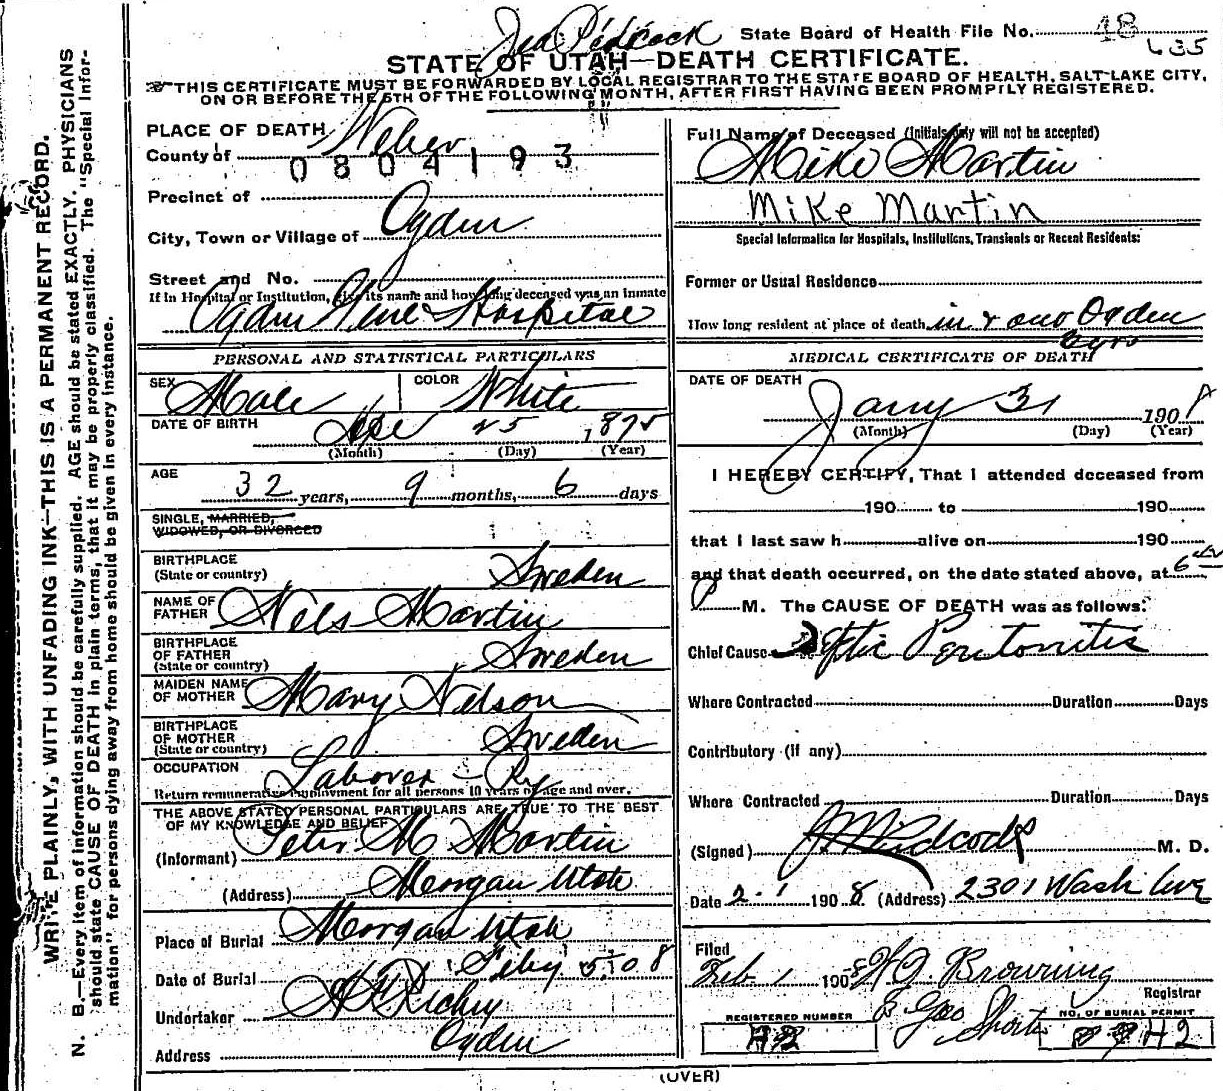 State Board of Health File No. 48
635
STATE OF UTAH—DEATH CERTIFICATE.
THIS CERTIFICATE MUST BE FORWARDED BY LOCAL REGISTRAR TO THE STATE BOARD OF HEALTH, SALT LAKE CITY,
ON OR BEFORE THE 5TH OF THE FOLLOWING MONTH, AFTER FIRST HAVING BEEN PROMPTLY REGISTERED.
WRITE PLAINLY, WITH UNFADING INK—THIS IS A PERMANENT RECORD.
N. B.—Every item of information should be carefully supplied. AGE should be stated EXACTLY. PHYSICIANS
should state CAUSE OF DEATH in plain terms, that it may be properly classified. The "Special Infor-
mation" for persons dying away from home should be given in every instance.
PLACE OF DEATH
County of Weber
0804193
Precinct of
City, Town or Village of Ogden
Street and No.
If in Hospital or Institution, give its name and how long deceased was an inmate
Ogden Genl Hospital
PERSONAL AND STATISTICAL PARTICULARS
SEX Male COLOR White
DATE OF BIRTH 25 1875
(Month) (Day) (Year)
AGE 32 years, 9 months, 6 days
SINGLE, MARRIED,
WIDOWED, OR DIVORCED
BIRTHPLACE
(State or country) Sweden
NAME OF
FATHER Nels Martin
BIRTHPLACE
OF FATHER
(State or country) Sweden
MAIDEN NAME
OF MOTHER Mary Nelson
BIRTHPLACE
OF MOTHER
(State or country) Sweden
OCCUPATION Laborer - Ry
Return remunerative employment for all persons 10 years of age and over.
THE ABOVE STATED PERSONAL PARTICULARS ARE TRUE TO THE BEST
OF MY KNOWLEDGE AND BELIEF
(Informant) Peter M Martin
(Address) Morgan Utah
Place of Burial Morgan Utah
Date of Burial Feby 5 08
Undertaker Richey
Address Ogden
Full Name of Deceased (Initials only will not be accepted)
Mike Martin
Mike Martin
Special Information for Hospitals, Institutions, Transients or Recent Residents:
Former or Usual Residence
How long resident at place of death in & out Ogden
yrs
MEDICAL CERTIFICATE OF DEATH
DATE OF DEATH
Jany 31 190
(Month) (Day) (Year)
I HEREBY CERTIFY, That I attended deceased from
190 to 190
that I last saw h alive on 190
and that death occurred, on the date stated above, at 6
P M. The CAUSE OF DEATH was as follows:
Chief Cause Septic Peritonitis
Where Contracted Duration Days
Contributory (if any)
Where Contracted Duration Days
(Signed) Pidcock M. D.
Date 2-1 1908 (Address) 2301 Wash Ave
Filed
Feb. 1 1908 Browning
Registrar
Geo Shorten
REGISTERED NUMBER
H2
NO. OF BURIAL PERMIT
H2
(OVER)